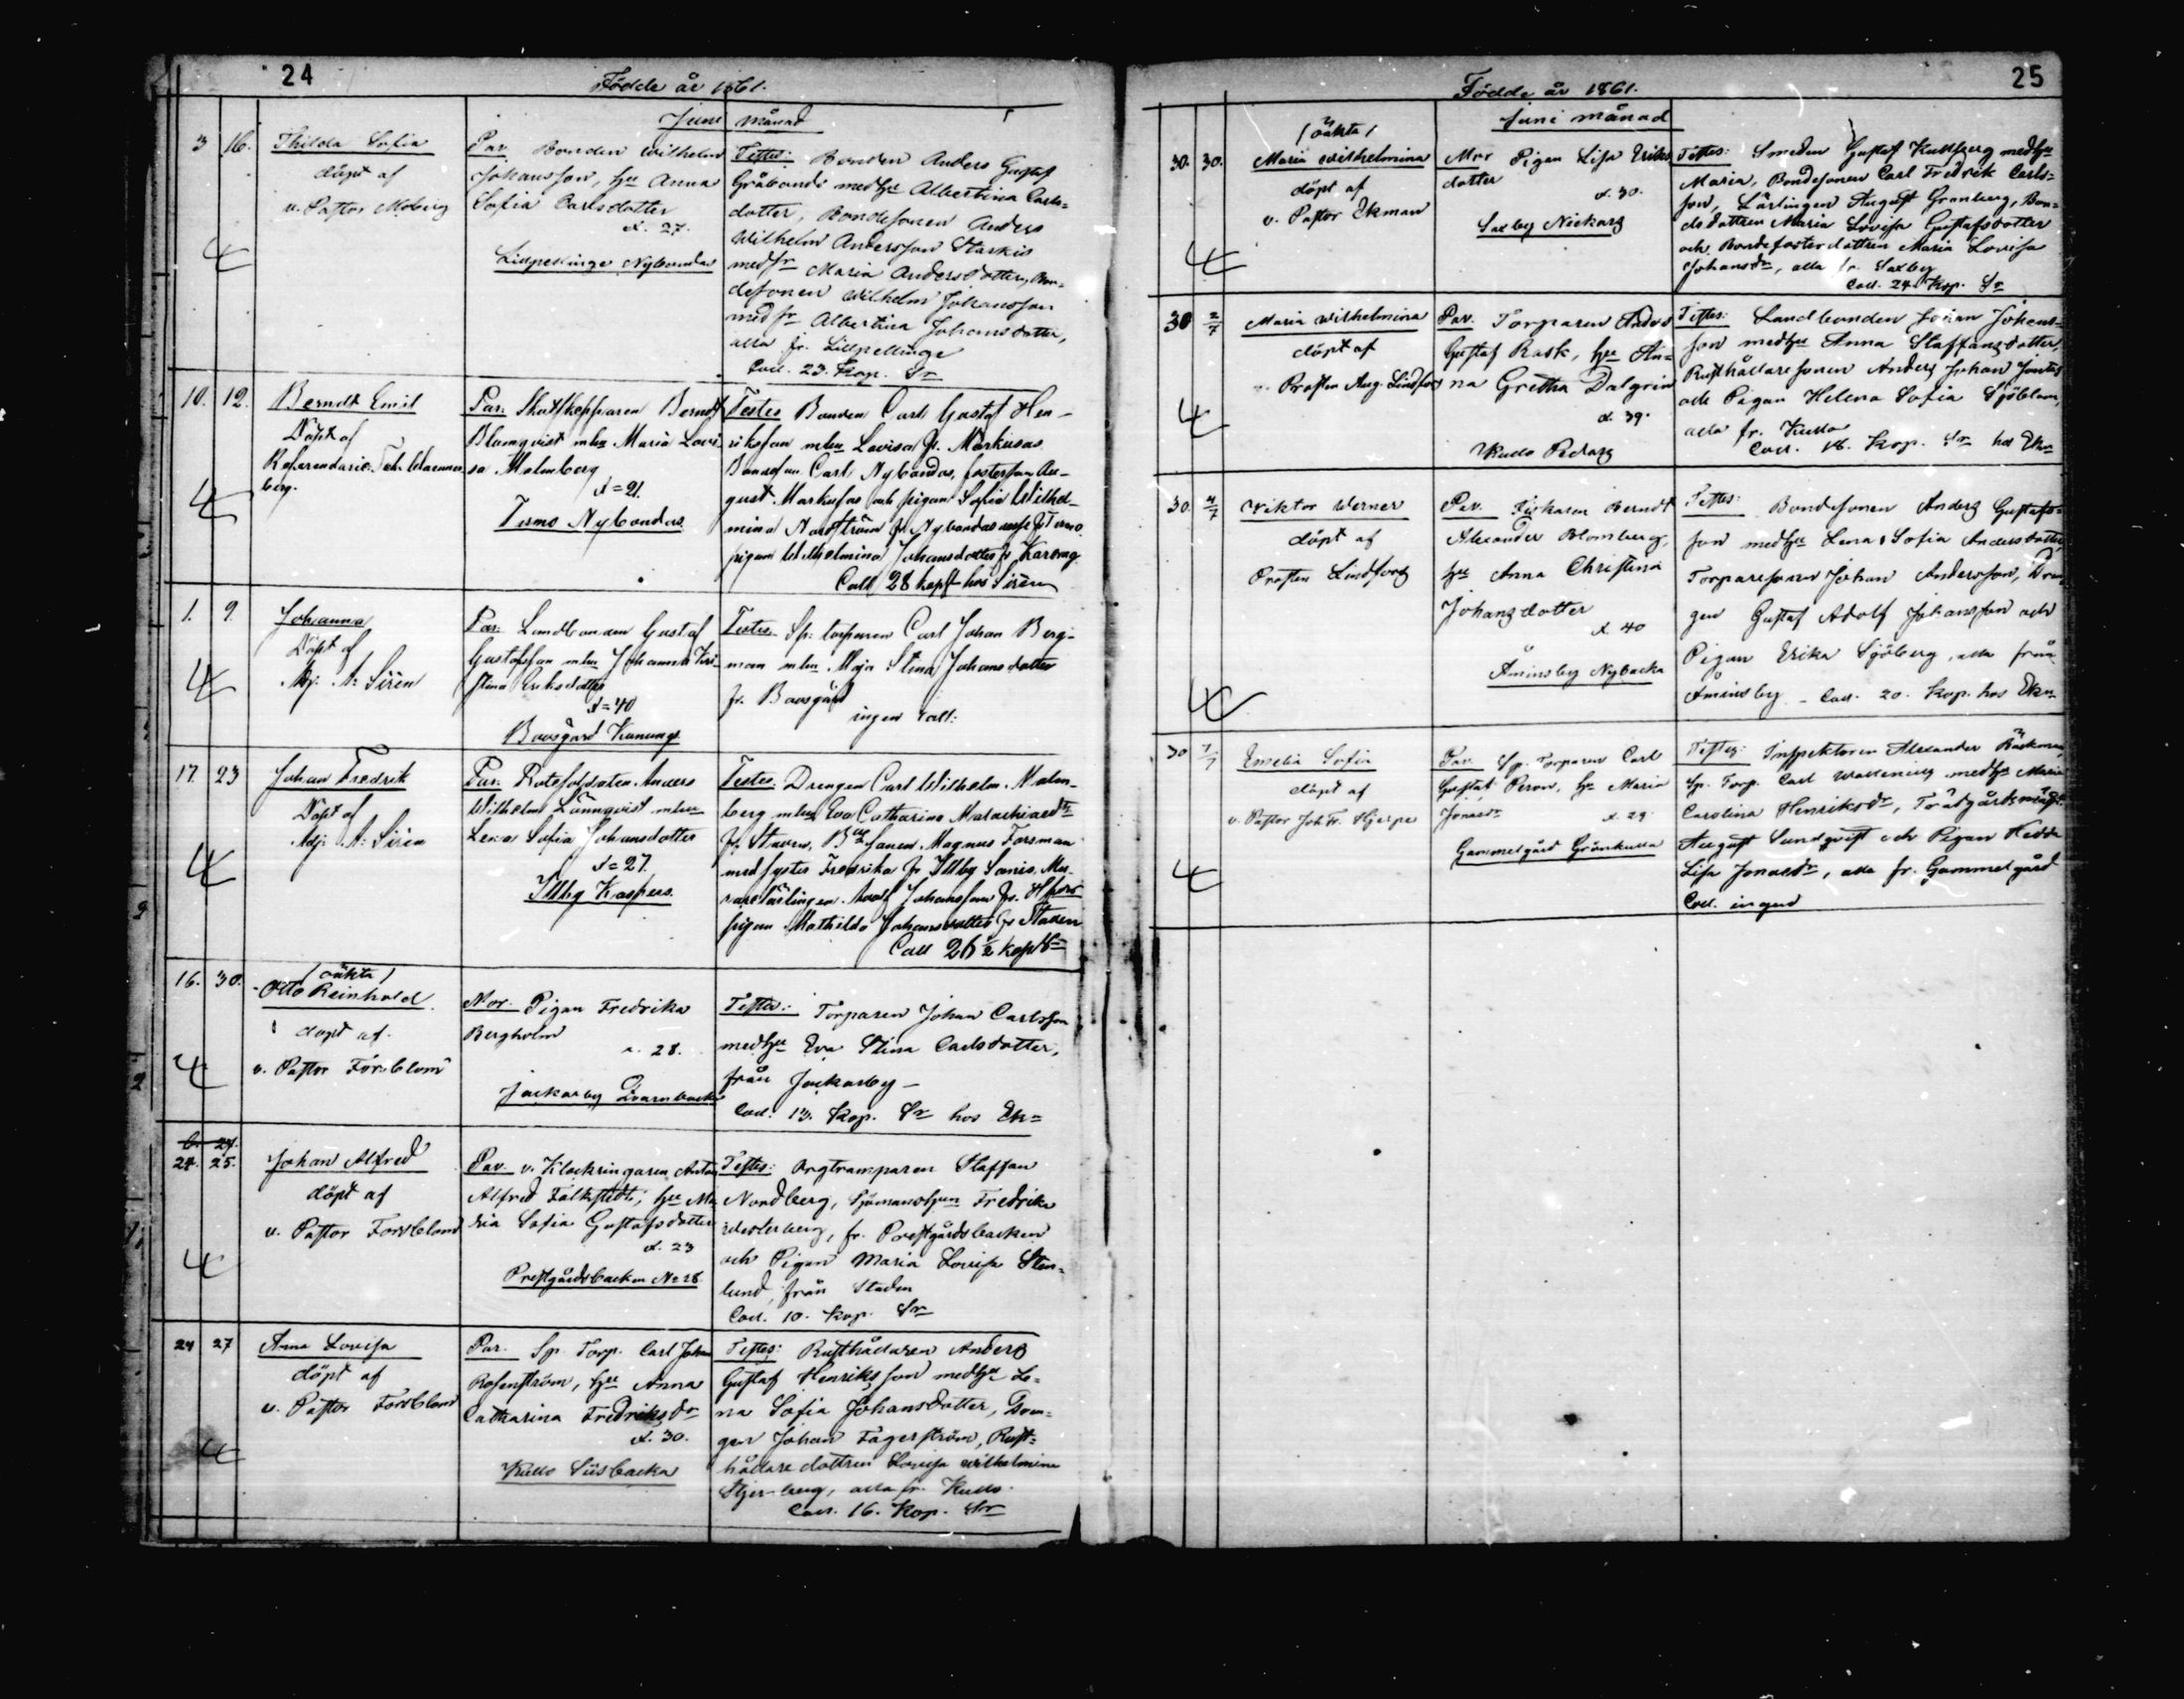 24
Födde år 1861.
Juni månad
3 16. Thilda Sofia
döpt af
v. Pastor Moberg
Par. Bonden Wilhelm
Johansson, hu Anna
Sofia Carlsdotter
ä. 27.
Lillpellinge Nybondas
Testes: Bonden Anders Gustaf
Gråbonds med hu Albertina Carls=
dotter, Bondesonen Anders
Wilhelm Andersson Starkis
med fr Maria Andersdotter, Bon=
desonen Wilhelm Johansson
med fr Albertina Johansdotter,
alla fr. Lillpellinge
Coll. 23. Kop. Sr
10. 12. Berndt Emil
Döpt af
Referendarie
berg.
Par: Skattskepparen Berndt
Blomqvist m hu Maria Lovi-
sa Malmberg
ä = 21.
Tirmo Nybondas
Testes Bonden Carl Gustaf Hen-
riksson m hu Lovisa fr. Markusas
Bondeson Carl Nybondas, fosterson Au-
gust Markusas och pigan Sofia Wilhel-
mina Nordström fr Nybondas fr Tirmo
pigan Wilhelmina Johansdotter fr
Coll 28 kop hos Sirén
1. 9. Johanna
Döpt af
Adj. A: Sirén
Par. Landbonden Gustaf
Gustafsson m hu Johanna Kri-
stina Eriksdotter
ä = 40
Boasgård
Testes Sp: torparen Carl Johan Berg-
man m hu Maja Stina Johansdotter
fr. Boasgård
ingen Coll:
17. 23 Johan Fredrik
Döpt af
Adj: A: Sirén
Par. Rotesoldaten Anders
Wilhelm Lönnqvist m hu
Lena Sofia Johansdotter
ä = 27.
Illby Kaspers.
Testes. Drengen Carl Wilhelm Malm-
berg m hu Eva Catharina
fr. Staden, Magnus Forsman
med syster Fredrika fr Illby
lärlingen Adolf Johansson fr.
pigan Mathilda Johansdotter fr Staden
Coll 26 ½ kop Sr
16. 30. (oäkta)
Otto Reinhold
döpt af.
v. Pastor Forsblom
Mor: Pigan Fredrika
Bergholm
ä. 28.
Jackarby
Testes: Torparen Johan Carlsson
med hu Eva Stina Carlsdotter,
från Jackarby -
Coll. 13. Kop. Sr hos Ek=
24. 25. Johan Alfred
döpt af
v. Pastor Forsblom
Par. v. Klockringaren Anton
Alfred Falkstedt, hu Ma
ria Sofia Gustafsdotter
ä. 23
Prestgårdsbacken No 28
Testes: Orgtramparen Staffan
Nordberg, Sjömanshun Fredrika
Westerberg, fr. Prestgårdsbacken
och Pigan Maria Lovisa Sten=
lund, från Staden
Coll. 10. Kop. Sr
24 27 Anna Lovisa
döpt af
v. Pastor Forsblom
Par. Sp. Torp. Carl Johan
Rosenström, hu Anna
Catharina Fredriksdr
ä. 30.
Kullo Siisbacka
Testes: Rusthållaren Anders
Gustaf Henriksson med hu Le=
na Sofia Johansdotter, Dren=
gen Johan Fagerström, Rust=
hållaredottren Lovisa Wilhelmina
Stjernberg, alla fr. Kullo.
Coll. 16. Kop. Sr
25
Födde år 1861.
Juni månad
30. 30. (oäkta)
Maria Wilhelmina
döpt af
v. Pastor Ekman
Mor Pigan Lisa Eriks
dotter
ä. 30.
Saxby Nickars
Testes: Smeden Gustaf Kullberg med hu
Maria, Bondesonen Carl Fredrik Carls=
son, Lärlingen August Granberg, Bon=
dedottren Maria Lovisa Gustafsdotter
och Bondefosterdottren Maria Lovisa
Johansdr, alla fr. Saxby
Coll. 24. Kop. Sr
30 2/7 Maria Wilhelmina
döpt af
v. Prosten Aug. Lindfors
Par. Torparen Anders
Gustaf Rask, hu An=
na Gretha Dalgren
ä. 39.
Kullo Pedars
Testes: Landbonden Johan Johans=
son med hu Anna Staffansdotter,
Rusthållaresonen Anders Johan
och Pigan Helena Sofia Sjöblom,
alla fr. Kullo
Coll. 18. Kop. Sr hos Ekn
30. 4/7 Wiktor Werner
döpt af
Prosten Lindfors
Par. Fiskaren Berndt
Alexander Blomberg,
hu Anna Christina
Johansdotter
ä. 40
Åminsby Nybacka
Testes: Bondesonen Anders Gustafs=
son med hu Lena Sofia Andersdotter,
Torparesonen Johan Andersson, Dren
gen Gustaf Adolf Johansson och
Pigan Erika Sjöberg, alla från
Åminsby - Coll. 20. Kop. hos Ekn
30 7/7 Emelia Sofia
döpt af
v. Pastor Joh. Fr. Hjerpe
Par. Sp. Torparen Carl
Gustaf Peron, hu Maria
Jonasdr
ä. 29.
Gammelgård Grönkulla
Testes: Inspektoren Alexander Bäckman,
Sp. Torp. Carl Wallenius med hu Maria
Carolina Henriksdr, Trädgårdsmäst.
August Sundqvist och Pigan Hedda
Lisa Jonasdr, alla fr. Gammelgård
Coll. ingen